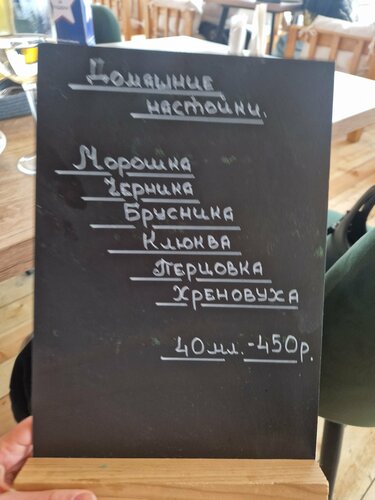 Домашние
настойки.
Морошка
Черника
Брусника
Клюква
Перцовка
Хреновуха
40мл.-450р.